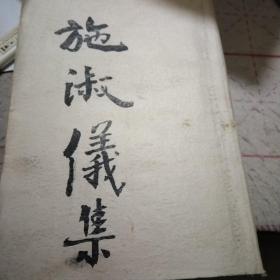 施淑儀集